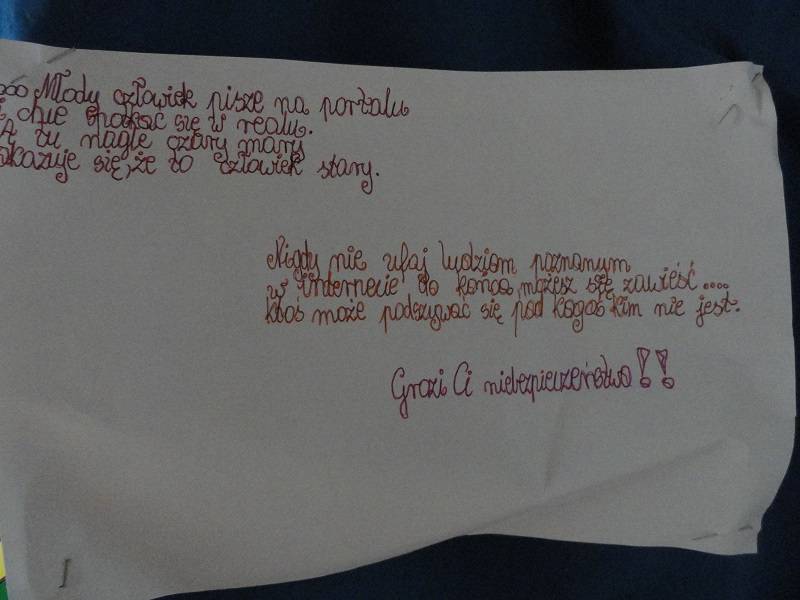 Młody człowiek pisze na portalu
i chce spotkać się w realu.
A tu nagle czary mary
okazuje się, że to człowiek stary.
Nigdy nie ufaj ludziom poznanym
w internecie do końca, możesz się zawieść....
ktoś może podszywać się pod kogoś kim nie jest.
Grozi Ci niebezpieczeństwo!!